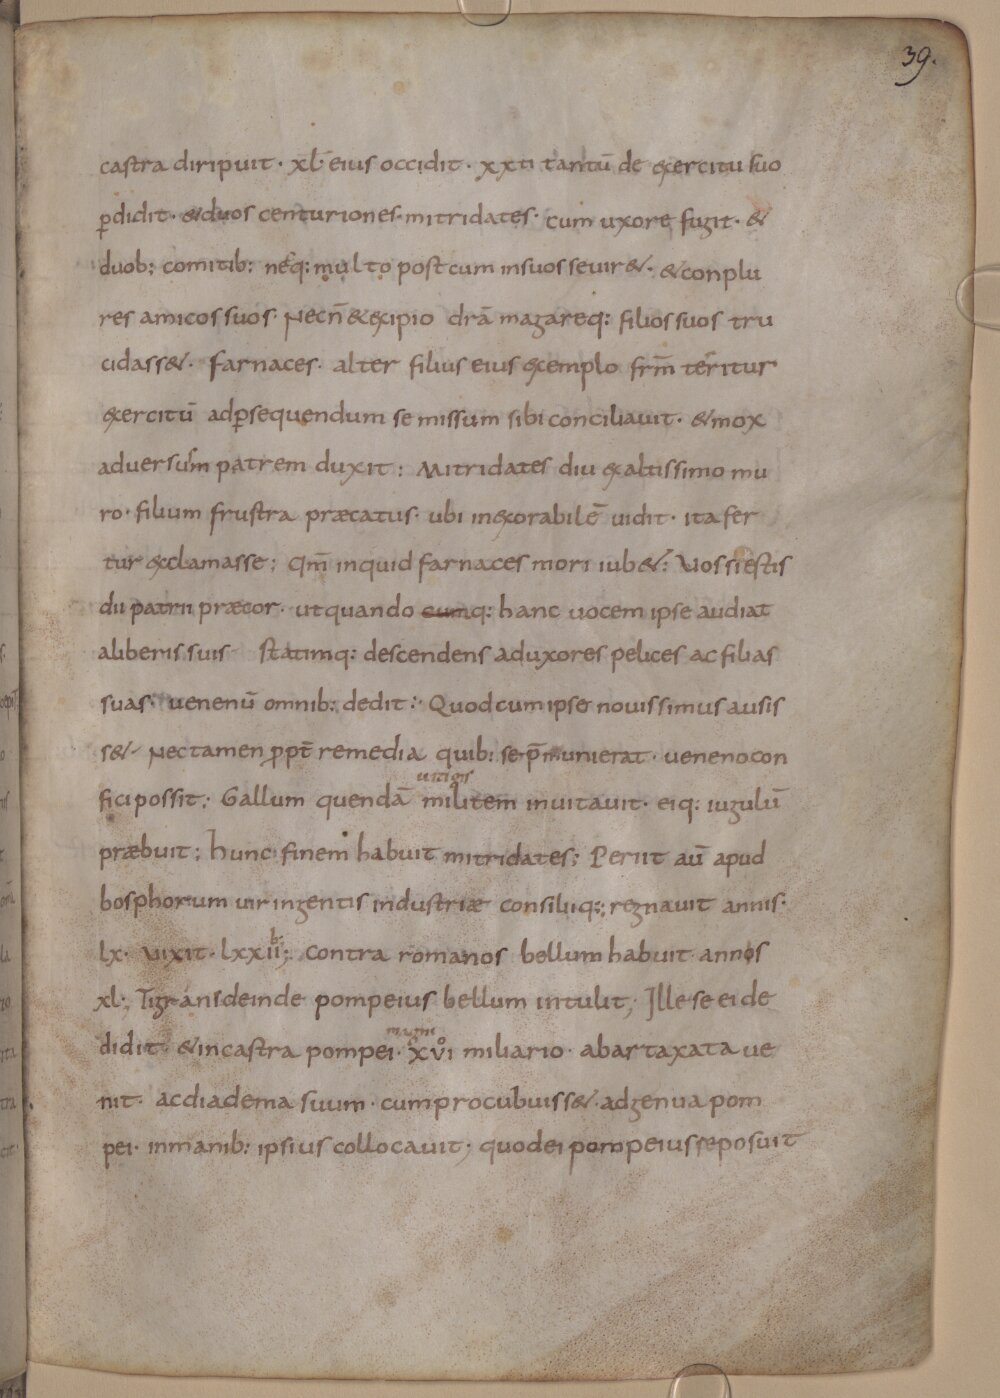 39.
castra diripuit · xl̄ eius occidit · xxti tantū de exercitu suo
p̱didit · & duos centuriones · mitridates · cum uxore fugit · &
duob: comitib: neq: multo post cum in suos seuir& · & conplu
res amicos suos · Necn̄ & excipio drā magareq: filios suos tru
cidass& · Farnaces · alter filius eius exemplo frm̄ territur
exercitū adp̱sequendum se missum sibi conciliauit · & mox
aduersum patrem duxit : Mitridates diu ex altissimo mu
ro · filium frustra præcatus · ubi inexorabilē uidit · ita fer
tur exclamasse ; Qm̄ inquid farnaces mori iub& : Vos si estis
dii patrii præcor · ut quando cumq: hanc uocem ipse audiat
a liberis suis · statimq: descendens ad uxores pelices ac filias
suas · uenenū omnib: dedit : Quod cum ipse nouissimus ausis
s& · Nec tamen ppt̄ remedia quib: se p̄munierat · ueneno con
fici possit ; Gallum quendā militem inuitauit · eiq: iugulū
uitigis
præbuit ; hunc finem habuit mitridates ; Periit aū apud
bosphorum uir ingentis industriæ consiliiq: ; regnauit annis ·
lx · Vixit · lxxii ; contra romanos bellum habuit annos
xl ; Tigrani deinde pompeius bellum intulit ; Ille se ei de
didit · & in castra pompei · xvi miliario · ab artaxata ue
nit · ac diadema suum · cum procubuiss& · ad genua pom
pei · in manib: ipsius collocauit ; quod ei pompeius reposuit